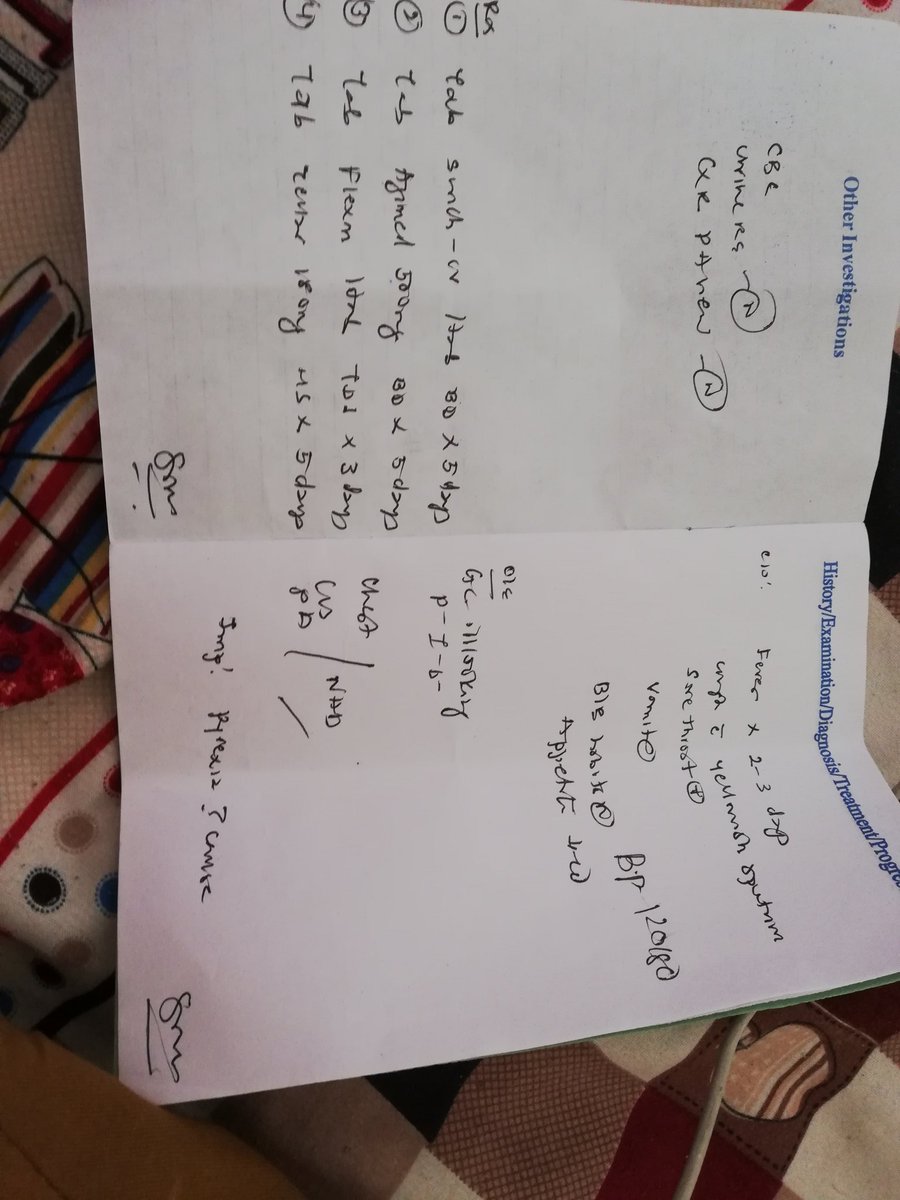 Other Investigations
CBC
Urine RE - N
CXR PA view - N
Rx
① Tab 1 tab BD x 5 days
② Tab 500mg BD x 5 days
③ Tab Flexon 1 tab TDS x 3 days
④ Tab 180mg HS x 5 days
History/Examination/Diagnosis/Treatment/Progre
C/O:
Fever x 2-3 days
cough c̄ yellowish sputum
Sore throat +
Vomit
BP 120/80
B/B habits N
Appetite
O/E
GC ill looking
P-I-
Chest
CVS / NAD
P/A
Imp: Pyrexia ? cause